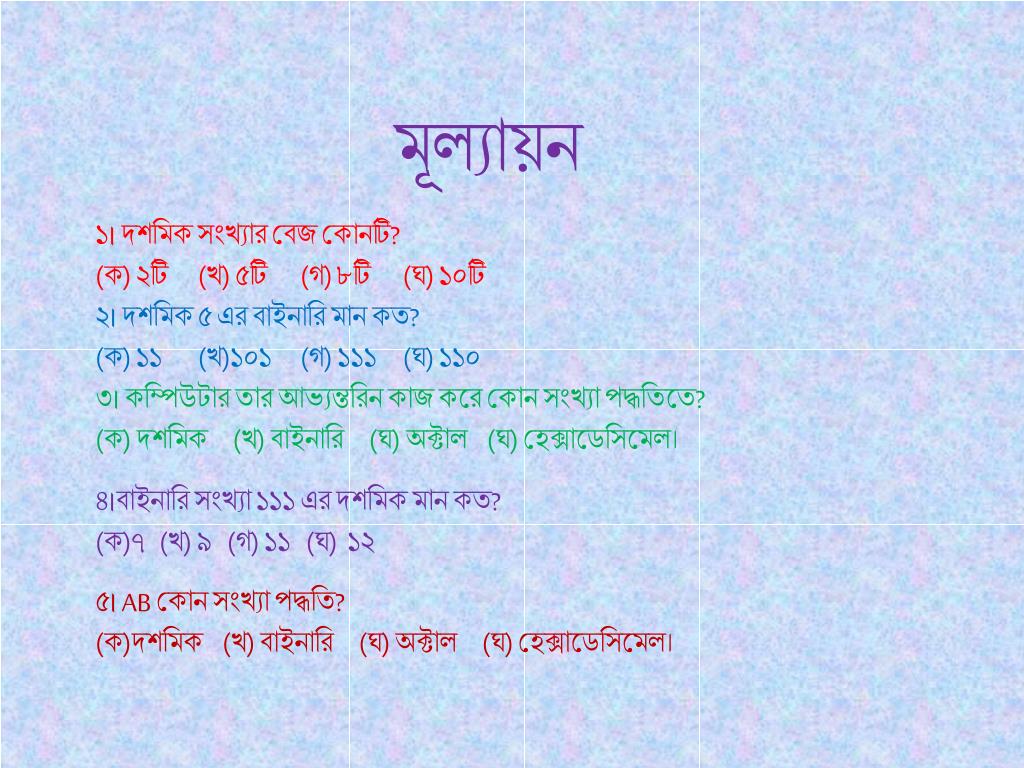 মূল্যায়ন
১। দশমিক সংখ্যার বেজ কোনটি?
(ক) ২টি (খ) ৫টি (গ) ৮টি (ঘ) ১০টি
২। দশমিক ৫ এর বাইনারি মান কত?
(ক) ১১ (খ)১০১ (গ) ১১১ (ঘ) ১১০
৩। কম্পিউটার তার আভ্যন্তরিন কাজ করে কোন সংখ্যা পদ্ধতিতে?
(ক) দশমিক (খ) বাইনারি (ঘ) অক্টাল (ঘ) হেক্সাডেসিমেল।
৪।বাইনারি সংখ্যা ১১১ এর দশমিক মান কত?
(ক)৭ (খ) ৯ (গ) ১১ (ঘ) ১২
৫। AB কোন সংখ্যা পদ্ধতি?
(ক)দশমিক (খ) বাইনারি (ঘ) অক্টাল (ঘ) হেক্সাডেসিমেল।